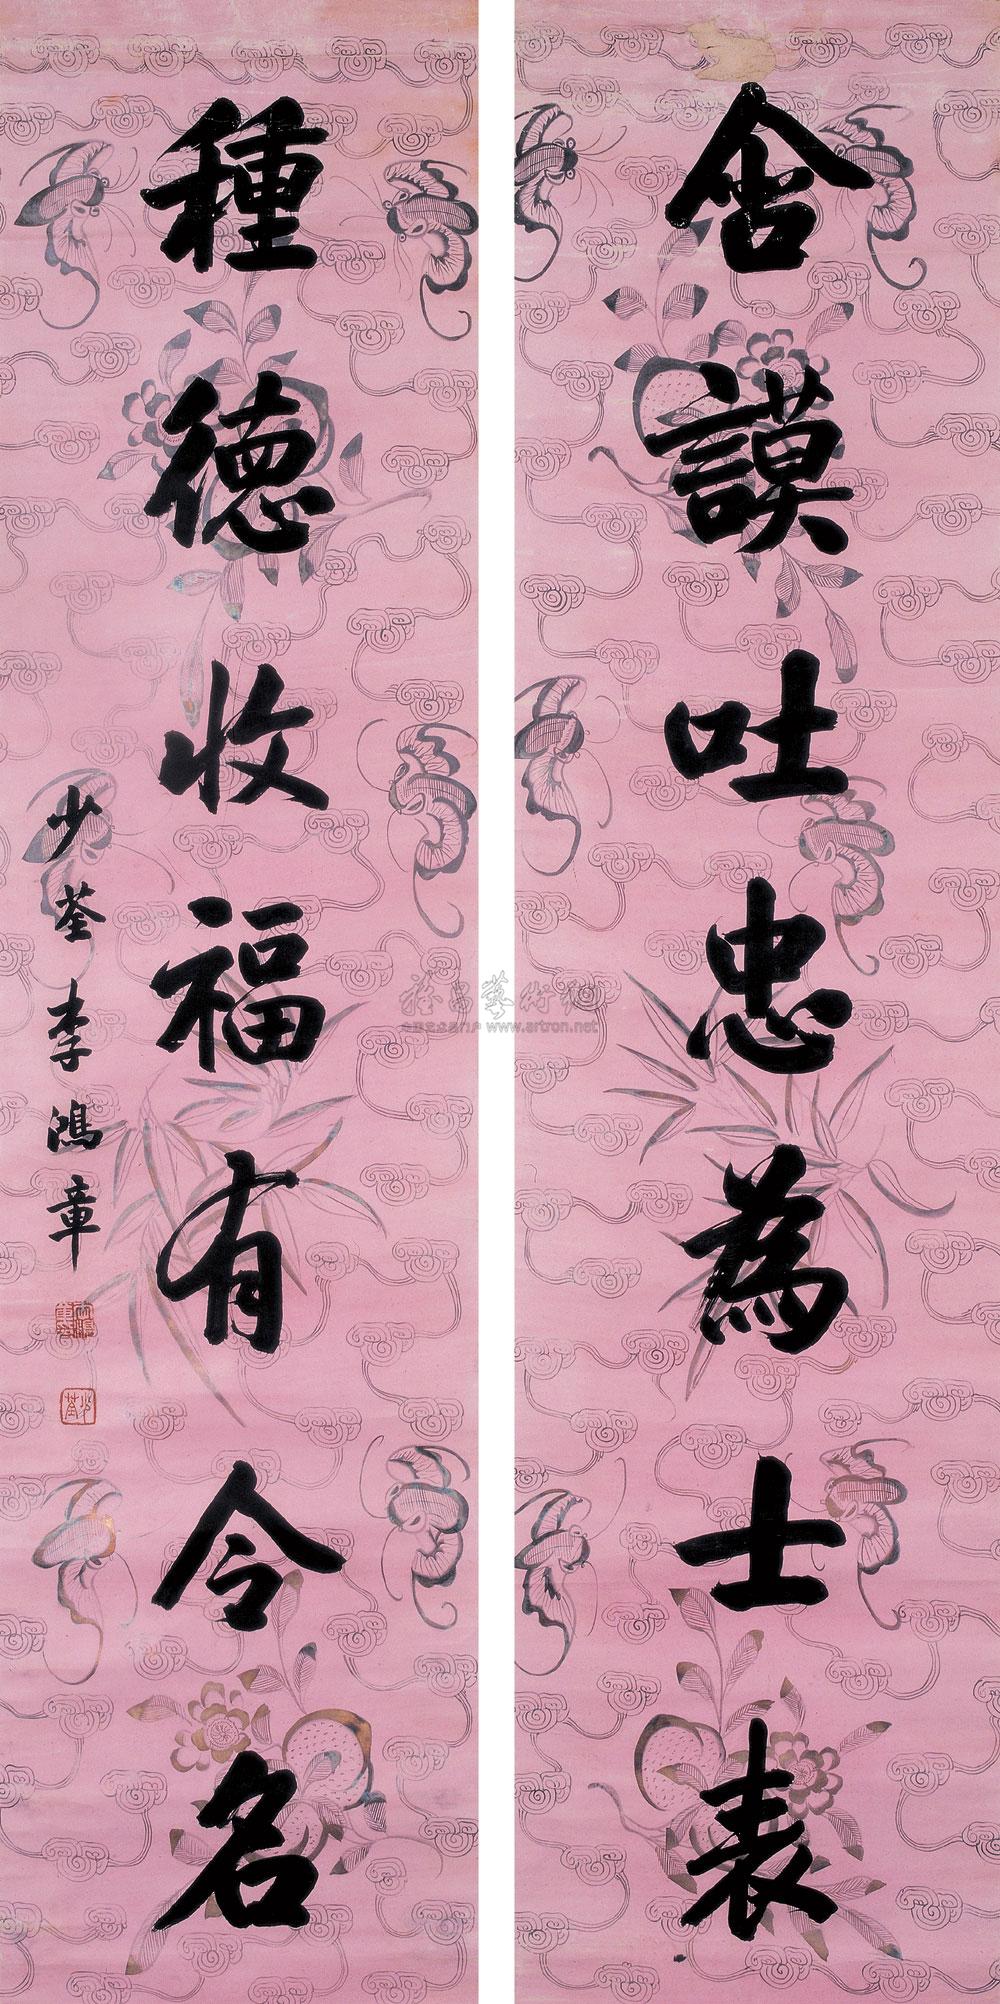 含謨吐忠為士表
種德收福有令名
少荃李鴻章
少荃
www.artron.net